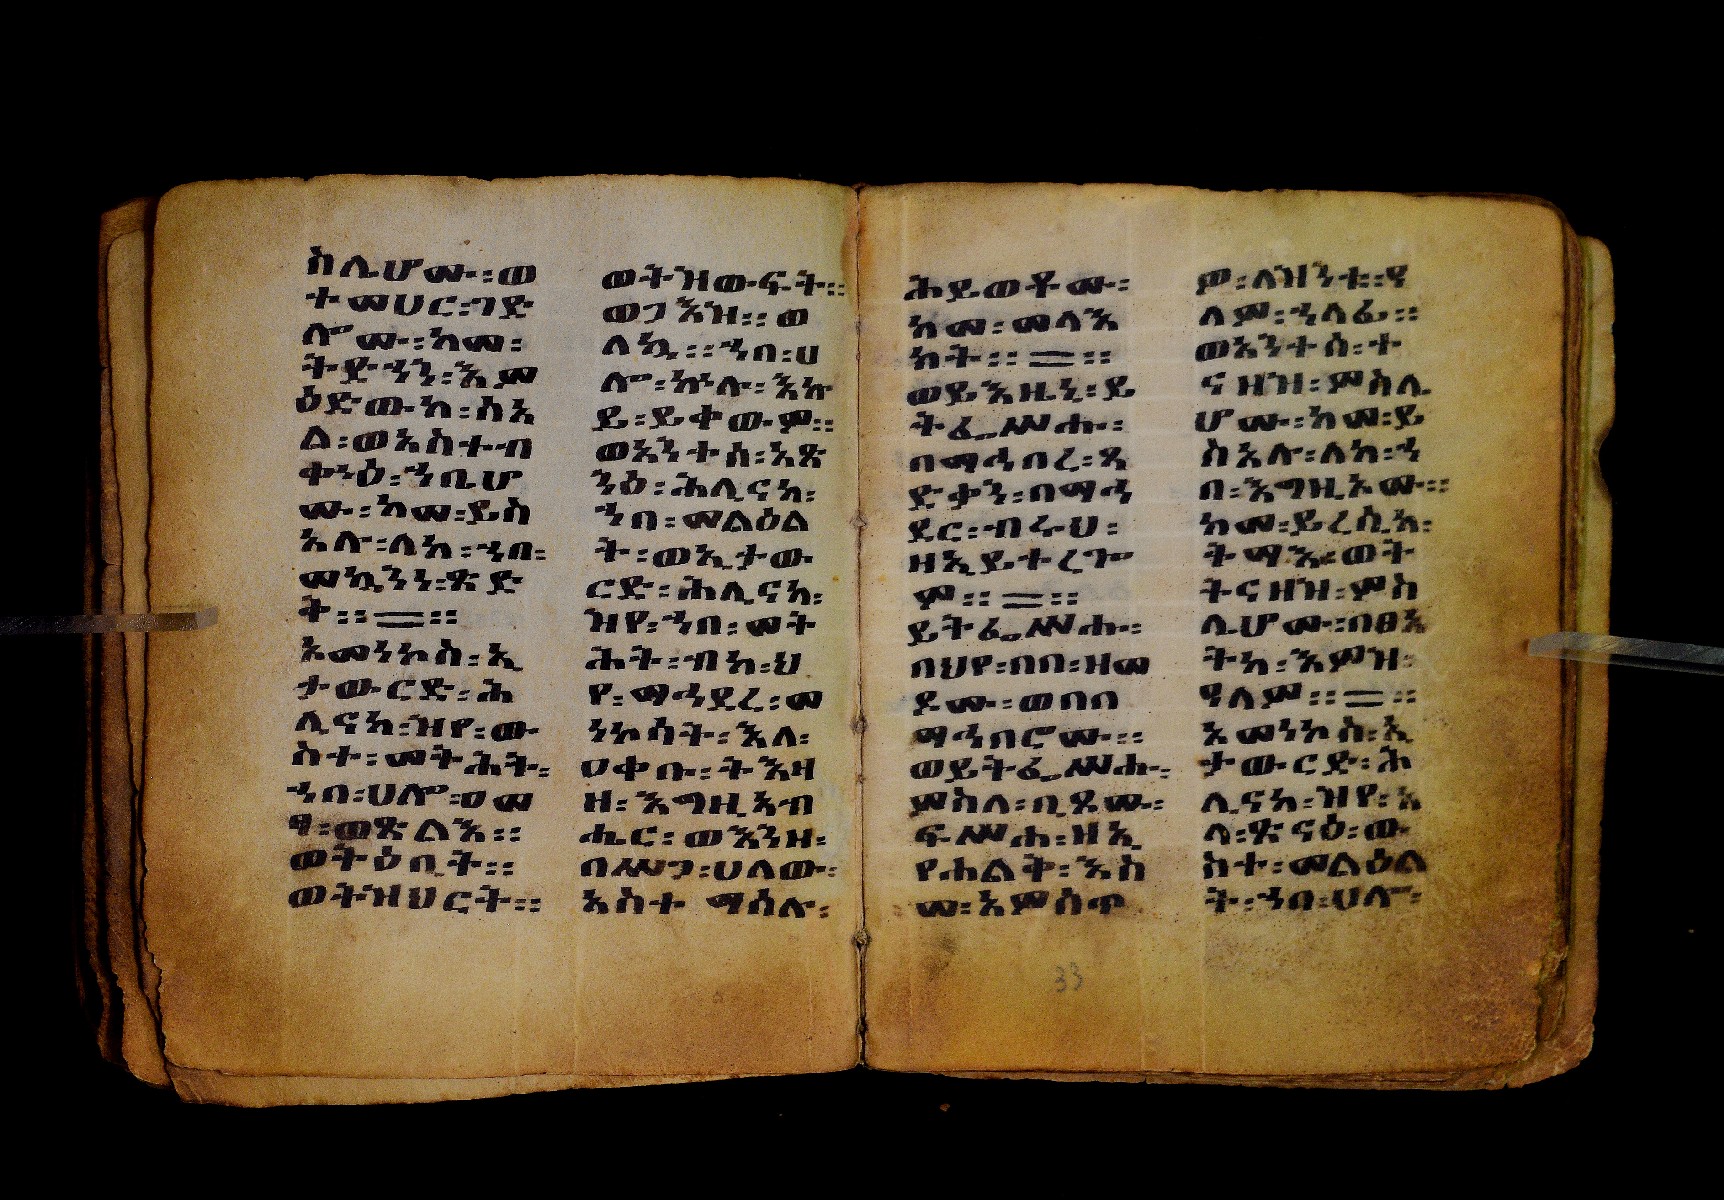 ስሊሆሙ፡፡ወ
ተመሀር፡ገድ
ሎሙ፡፡ከመ፡
ትድኀን፡እም
ዕድው.ከ፡ሰአ
ል፡ወአስተብ
ቀኍዕ፡ኀቢሆ
ሙ፡፡ከመ፡ይስ
አሉ፡ለከ፡ኀበ፡
መኴንነ፡ጽድ
ት፡፡=፡፡
አመነኮስ፡ኢ
ታውርድ፡ሕ
ሊናከ፡ዝየ፡ው
ስተ፡መትሕት፡
ኀበ፡ሀሎ፡ዐመ
ፃ፡ወጽልእ፡፡
ወትዕቢት፡፡
ወትዝህርት፡፡
ወትዝውፍት፡፡
ወጋእዝ፡፡ወ
ለኳ፡፡ኀበ፡ሀ
ሎ፡ኵሉ፡እኩ
ይ፡ይቀውም፡፡
ወአንተሰ፡አጽ
ንዕ፡ሕሊናከ፡
ኀበ፡መልዕል
ት፡ወኢታው
ርድ፡ሕሊናከ፡
ዝየ፡ኀበ፡መት
ሕት፡ብከ፡ህ
የ፡ማኅደረ፡መ
ነኮሳት፡እለ፡
ዐቀቡ፡ትእዛ
ዘ፡እግዚአብ
ሔር፡ወእንዘ፡
በሥጋ፡ሀለው፡
አስተ ማሰሉ፡
ሕይወቶሙ፡
ከመ፡መላእ
ክት፡፡=፡፡
ወይእዜኒ፡ይ
ትፌሥሑ፡
በማኅበረ፡ጻ
ድቃን፡በማኅ
ደር፡ብሩህ፡
ዘኢይተረጐ
ም፡፡=፡፡
ይትፌሥሑ፡
በህየ፡በበ፡ዘመ
ዶሙ፡ወበበ
ማኅበሮሙ፡፡
ወይትፌሥሑ፡
ምስለ፡ቢጾሙ፡
ፍሥሐ፡ዘኢ
የሐልቅ፡እስ
መ፡አምሰጥ
ም፡ለዝንቱ፡ዓ
ለም፡ኀላፊ፡፡
ወአንተሰ፡ተ
ናዘዝ፡ምስሊ
ሆሙ፡ከመ፡ይ
ስአሉ፡ለከ፡ኀ
በ፡እግዚኦሙ፡፡
ከመ፡ይረሲከ፡
ትማእ፡ወት
ትናዘዝ፡ምስ
ሊሆሙ፡በፀአ
ትከ፡እምዝ፡
ዓለም፡፡=፡፡
አመነኮስ፡ኢ
ታውርድ፡ሕ
ሊናከ፡ዝየ፡አ
ላ፡ጽናዕ፡ው
ስተ፡መልዕል
ት፡ኀበ፡ሀሎ፡
33